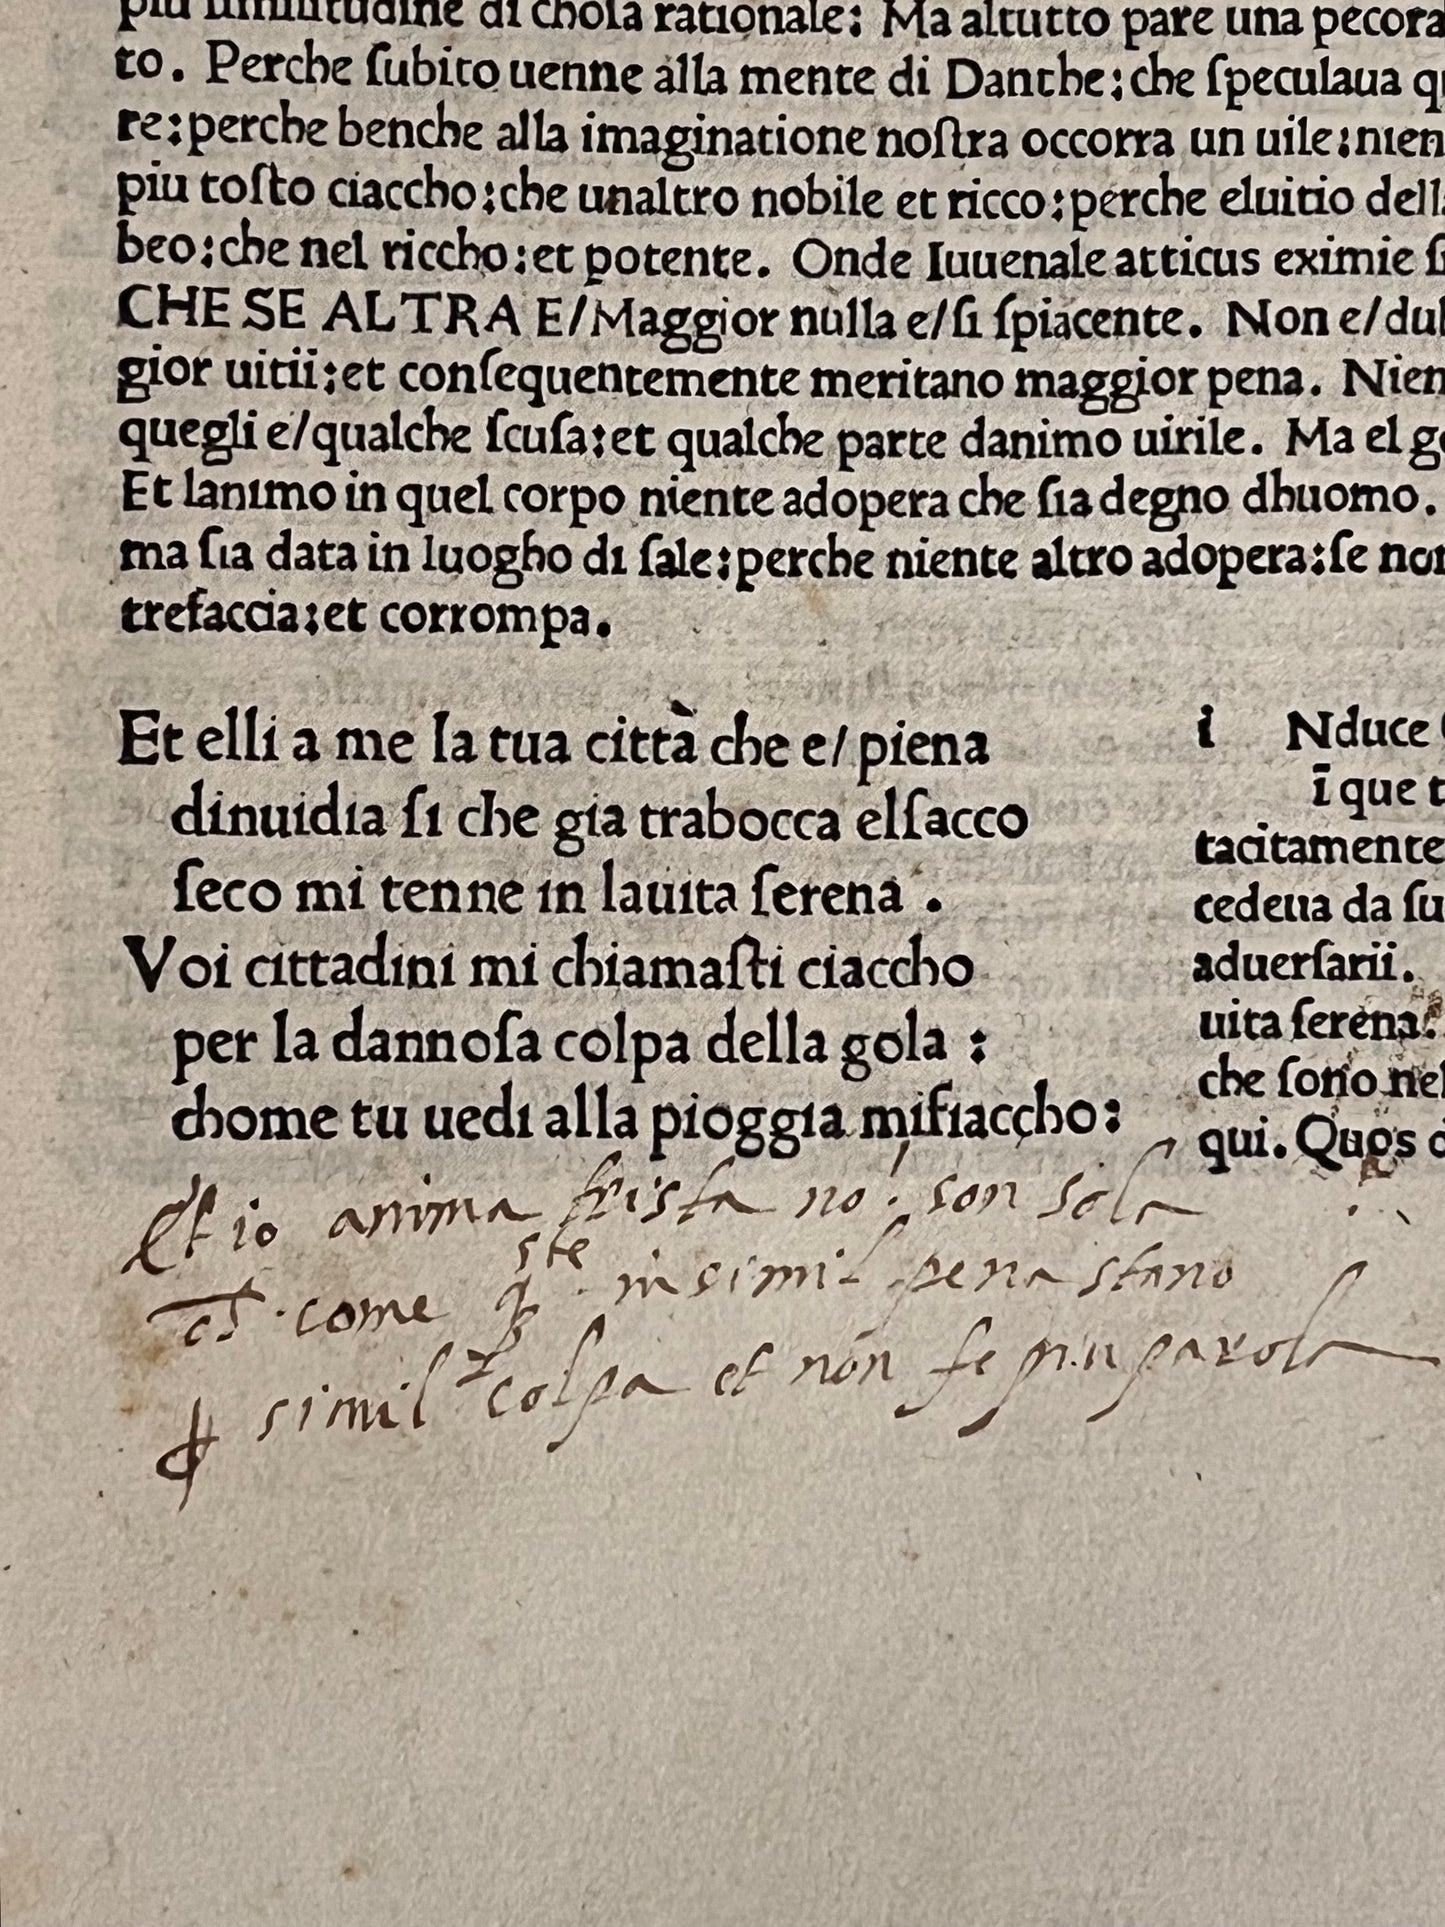 più ſimilitudine di choſa rationale: Ma altutto pare una pecora
to. Perche ſubito uenne alla mente di Danthe: che ſpeculaua
re: perche benche alla imaginatione noſtra occorra un uile: nien
piu toſto ciaccho: che unaltro nobile et ricco: perche eluitio dell
beo: che nel riccho: et potente. Onde Iuuenale atticus eximie
CHE SE ALTRA E/Maggior nulla e/ſi ſpiacente. Non e/dub
gior uitii: et conſequentemente meritano maggior pena. Nien
quegli e/qualche ſcuſa: et qualche parte danimo uirile. Ma el
Et lanimo in quel corpo niente adopera che ſia degno dhuomo.
ma ſia data in luogho di ſale: perche niente altro adopera: ſe non
trefaccia: et corrompa.
Et elli a me la tua città che e/ piena
dinuidia ſi che gia trabocca elſacco
ſeco mi tenne in lauita ſerena .
Voi cittadini mi chiamaſti ciaccho
per la dannoſa colpa della gola :
chome tu uedi alla pioggia mifiaccho:
i Nduce
ī que t
tacitamente
cedeua da ſu
aduerſarii.
uita ſerena.
che ſono nel
qui. Quos
Et io anima trista no! son sola
come q̃ste in simil pena stano
ꝑ simil colpa et nón fe piu parola